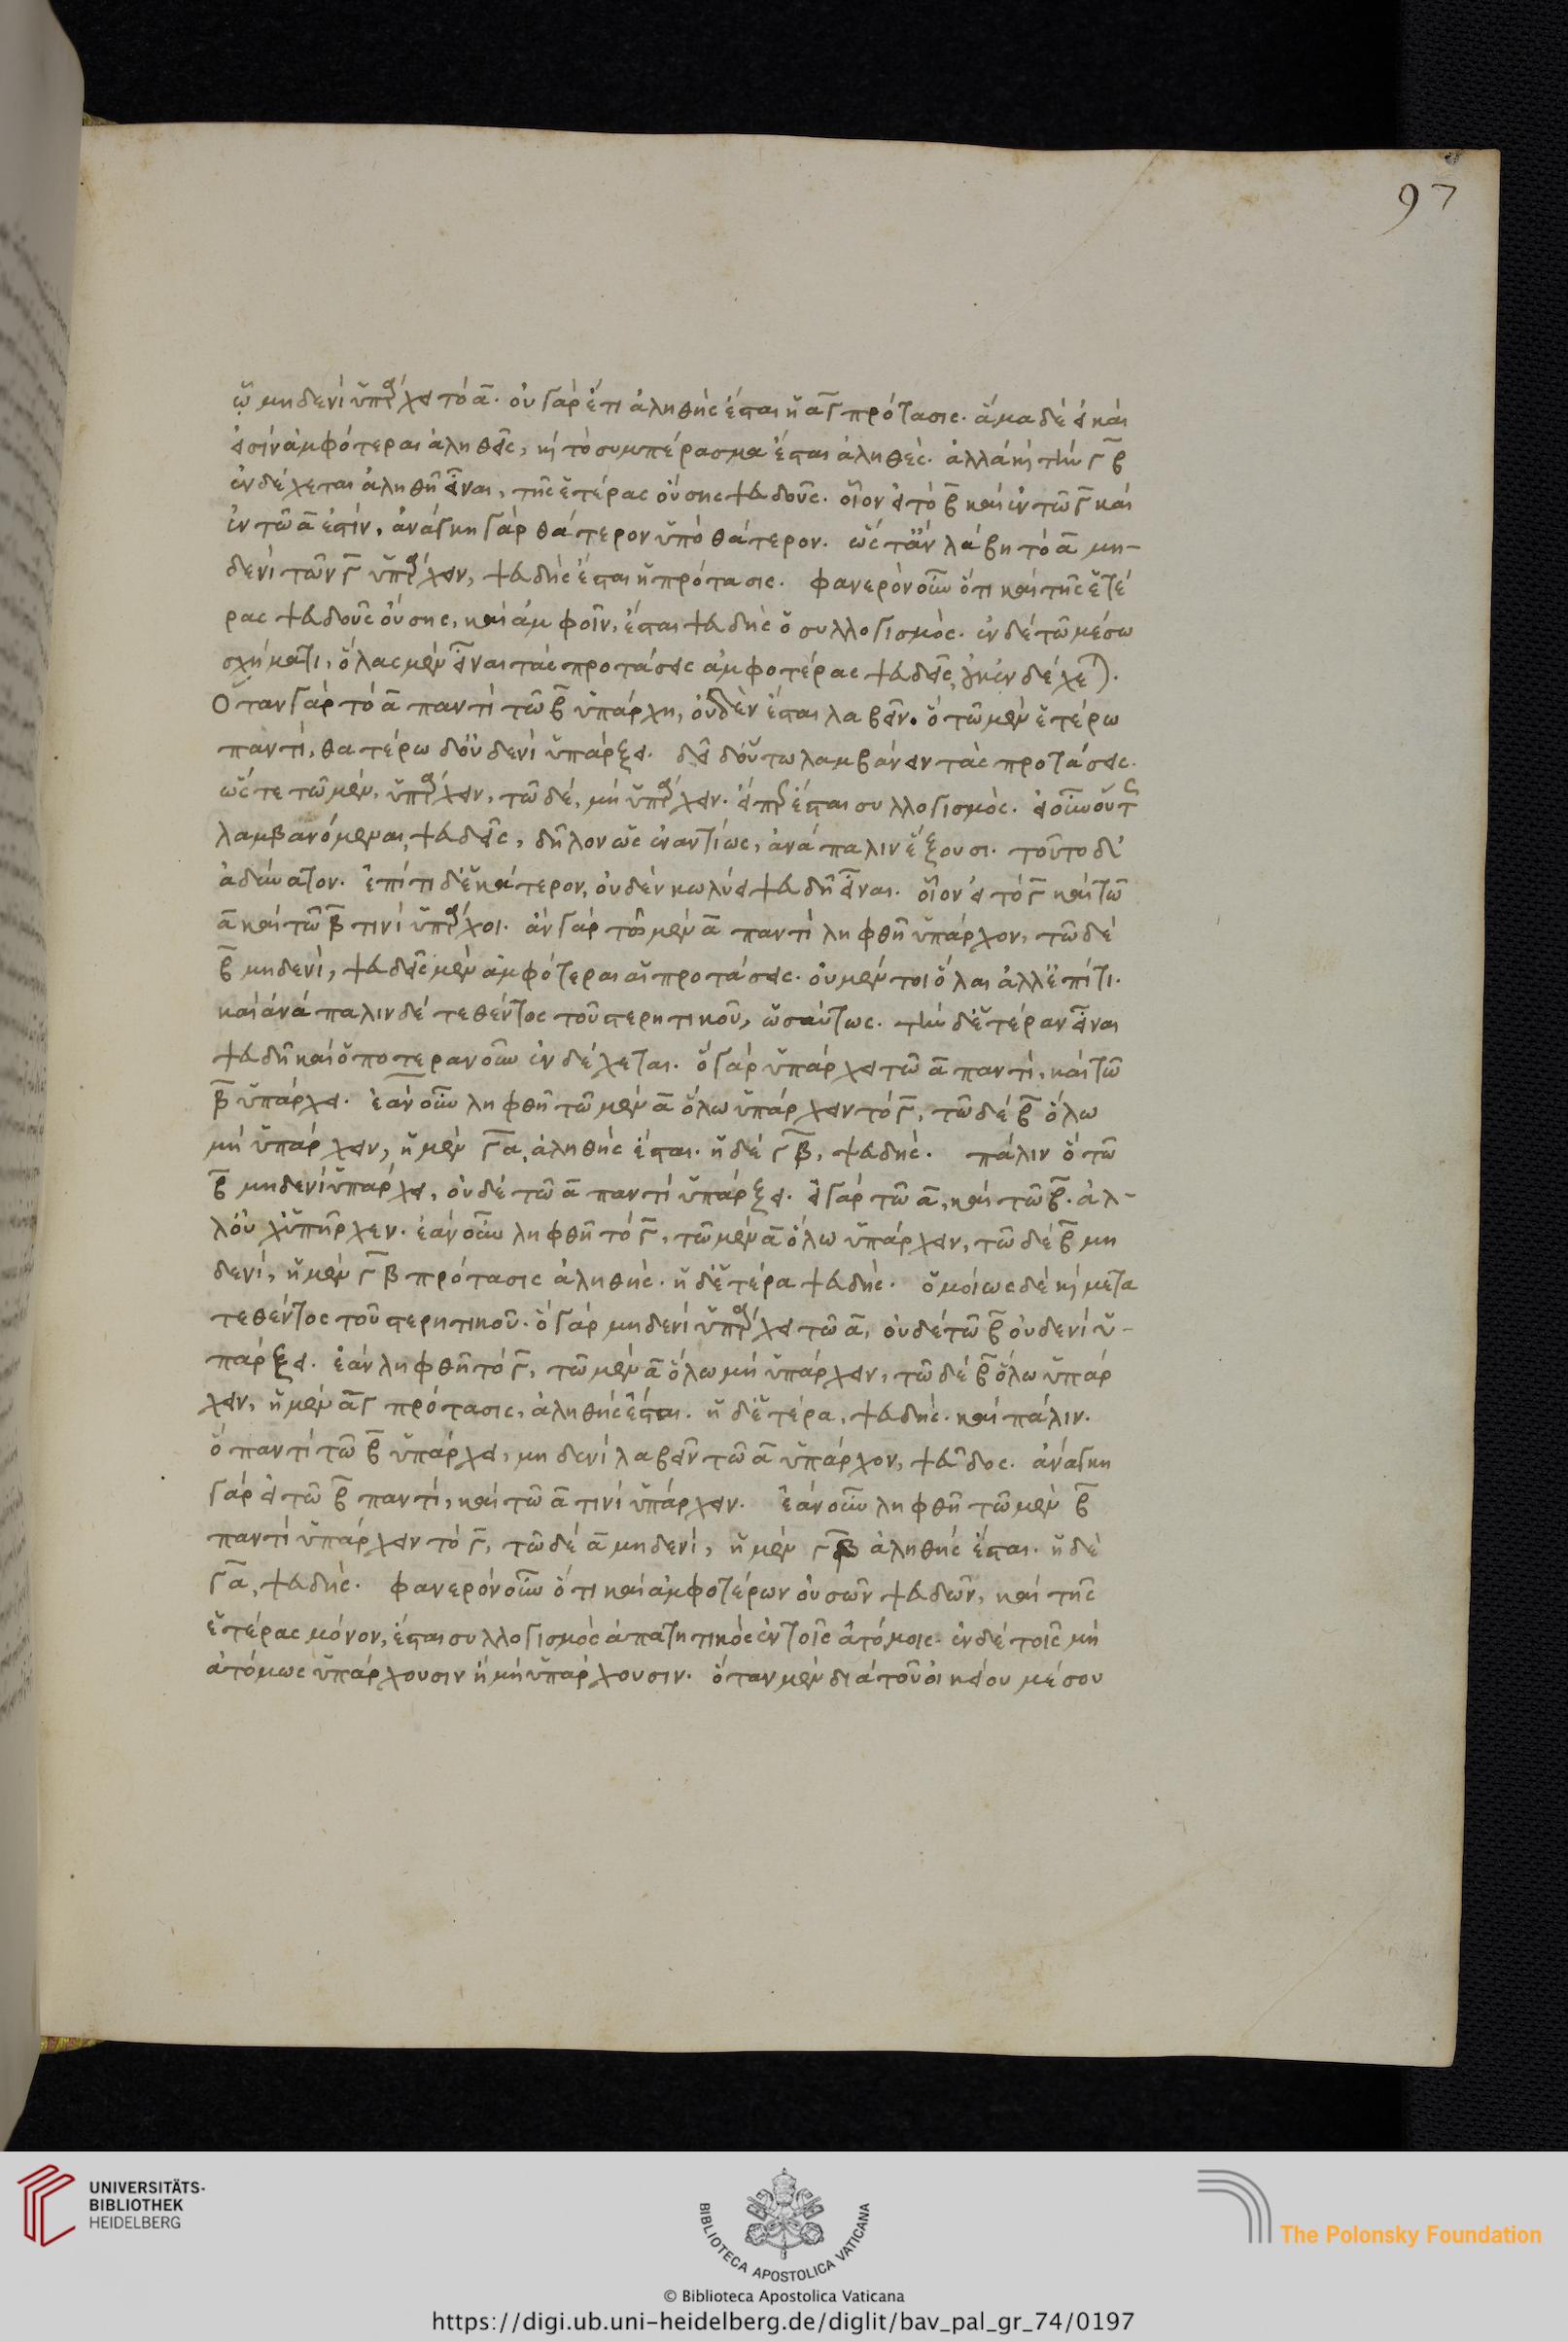 97
ὧ μηδενὶ ὑπάρχει τὸ α. οὐ γὰρ ἔτι ἀληθὴς ἔσται ἡ αγ πρότασις. ἅμα δὲ εἰ καὶ
εἰσὶν ἀμφότεραι ἀληθεῖς, κ τὸ συμπέρασμα ἔσται ἀληθές. ἀλλὰ κ τὴν γβ
ἐνδέχεται ἀληθῆ εἶναι, τῆς ἑτέρας οὔσης ψευδοῦς. οἷον εἰ τὸ β καὶ ἐν τῶ γ καὶ
ἐν τῶ α ἐστίν, ἀνάγκη γὰρ θάτερον ὑπὸ θάτερον. ὥστ ἂν λάβη τὸ α μη-
δενὶ τῶν γ ὑπάρχειν, ψευδὴς ἔσται ἡ πρότασις. φανερὸν οὖν ὅτι καὶ τῆς ἑτέ
ρας ψευδοῦς οὔσης, καὶ ἀμφοῖν, ἔσται ψευδὴς ὁ συλλογισμός. ἐν δὲ τῶ μέσω
σχήματι, ὅλας μὲν εἶναι τὰς προτάσεις ἀμφοτέρας ψευδεῖς, οὐκ ἐνδέχε).
Ὅταν γὰρ τὸ α παντὶ τῶ β ὑπάρχη, οὐδὲν ἔσται λαβεῖν. ὃ τῶ μὲν ἑτέρω
παντί, θατέρω δ οὐδενὶ ὑπάρξει. δεῖ δ οὕτω λαμβάνειν τὰς προτάσεις.
ὥστε τῶ μὲν, ὑπάρχειν, τῶ δὲ, μὴ ὑπάρχειν. εἴπερ ἔσται συλλογισμός. εἰ οὖν οὕτ
λαμβανόμεναι, ψευδεῖς, δῆλον ὡς ἐναντίως, ἀνάπαλιν ἕξουσι. τοῦτο δ
ἀδύνατον. ἐπί τι δ ἑκάτερον, οὐδὲν κωλύει ψευδῆ εἶναι. οἷον εἰ τὸ γ καὶ τῶ
α καὶ τῶ β τινὶ ὑπάρχοι. ἂν γὰρ τῶ μὲν α παντὶ ληφθῆ ὑπάρχον, τῶ δὲ
β μηδενί, ψευδεῖς μὲν ἀμφότεραι αἱ προτάσεις. οὐ μέντοι ὅλαι ἀλλ ἐπί τι.
καὶ ἀνάπαλιν δὲ τεθέντος τοῦ στερητικοῦ, ὡσαύτως. τὴν δ ἑτέραν εἶναι
ψευδῆ καὶ ὁποτερανοῦν ἐνδέχεται. ὃ γὰρ ὑπάρχει τῶ α παντί, καὶ τῶ
β ὑπάρχει. ἐὰν οὖν ληφθῆ τῶ μὲν α ὅλω ὑπάρχειν τὸ γ, τῶ δὲ β ὅλω
μὴ ὑπάρχειν, ἡ μὲν γα, ἀληθὴς ἔσται. ἡ δὲ γβ, ψευδής. πάλιν ὃ τῶ
β μηδενὶ ὑπάρχει, οὐδὲ τῶ α παντὶ ὑπάρξει. εἰ γὰρ τῶ α, καὶ τῶ β. ἀλ-
λ οὐχ ὑπῆρχεν. ἐὰν οὖν ληφθῆ τὸ γ, τῶ μὲν α ὅλω ὑπάρχειν, τῶ δὲ β μη
δενί, ἡ μὲν γβ πρότασις ἀληθής. ἡ δ ἑτέρα ψευδής. ὁμοίως δὲ κ μετα
τεθέντος τοῦ στερητικοῦ. ὃ γὰρ μηδενὶ ὑπάρχει τῶ α, οὐδὲ τῶ β οὐδενὶ ὑ-
πάρξει. ἐὰν ληφθῆ τὸ γ, τῶ μὲν α ὅλω μὴ ὑπάρχειν, τῶ δὲ β ὅλω ὑπάρ
χειν, ἡ μὲν αγ πρότασις, ἀληθὴς ἔσται. ἡ δ ἑτέρα, ψευδής. καὶ πάλιν.
ὃ παντὶ τῶ β ὑπάρχει, μηδενὶ λαβεῖν τῶ α ὑπάρχον, ψεῦδος. ἀνάγκη
γὰρ εἰ τῶ β παντί, καὶ τῶ α τινὶ ὑπάρχειν. ἐὰν οὖν ληφθῆ τῶ μὲν β
παντὶ ὑπάρχειν τὸ γ, τῶ δὲ α μηδενί, ἡ μὲν γβ ἀληθὴς ἔσται. ἡ δὲ
γα, ψευδής. φανερὸν οὖν ὅτι καὶ ἀμφοτέρων οὐσῶν ψευδῶν, καὶ τῆς
ἑτέρας μόνον, ἔσται συλλογισμὸς ἀπατητικὸς ἐν τοῖς ἀτόμοις. ἐν δὲ τοῖς μὴ
ἀτόμως ὑπάρχουσιν ἢ μὴ ὑπάρχουσιν. ὅταν μὲν διὰ τοῦ οἰκείου μέσου
UNIVERSITÄTS-
BIBLIOTHEK
HEIDELBERG
BIBLIOTECA APOSTOLICA VATICANA
The Polonsky Foundation
© Biblioteca Apostolica Vaticana
https://digi.ub.uni-heidelberg.de/diglit/bav_pal_gr_74/0197